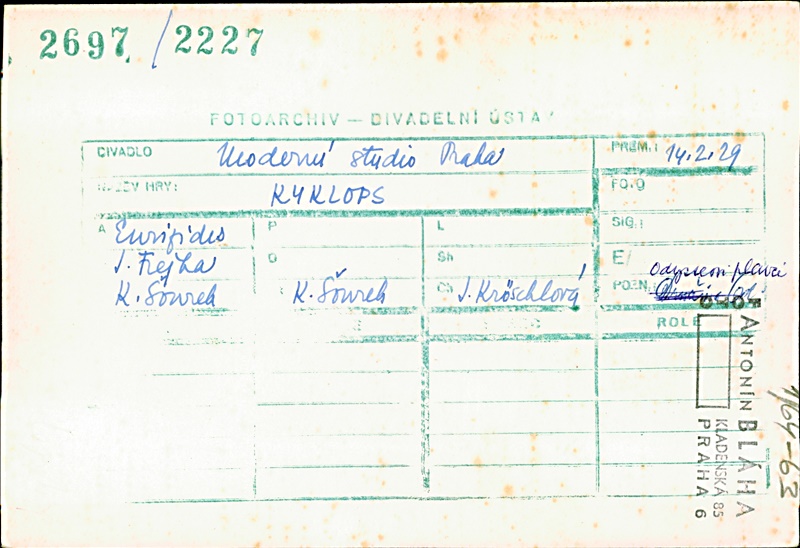 2697 / 2227
FOTOARCHIV — DIVADELNÍ ÚSTAV
DIVADLO Moderní studio Praha PREM.: 14.2.29
NÁZEV HRY: KYKLOPS FOTO
A Euripides P L SIG.:
J. Frejka O Sh E/
K. Šourek K. Šourek Ch J. Kröschlová POZN. Odysseovi plavci
ROLE
FOTO
ANTONÍN BLÁHA
KLADENSKÁ 85
PRAHA 6
1/64-63